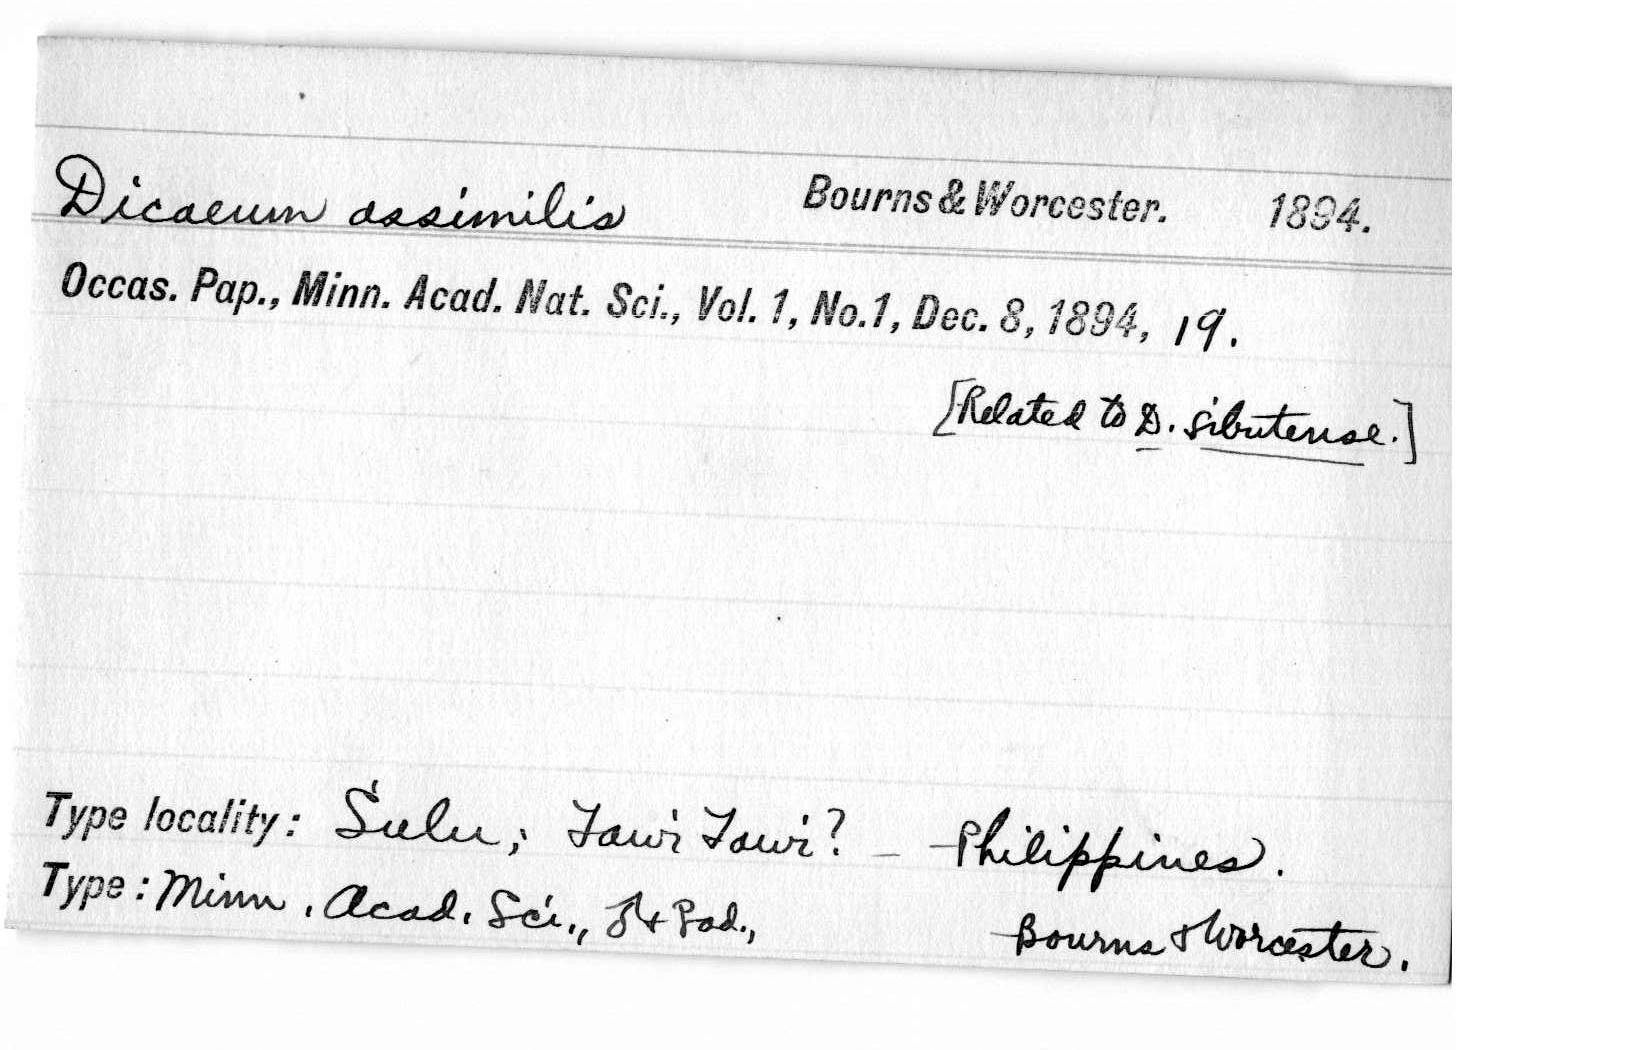 Dicaeum assimilis Bourns & Worcester. 1894.
Occas. Pap., Minn. Acad. Nat. Sci., Vol. 1, No.1, Dec. 8, 1894, 19.
[Related to D. sibutense.]
Type locality: Sulu; Tawi Tawi? – Philippines.
Type: Minn. Acad. Sci., ♂ + ad., Bourns & Worcester.